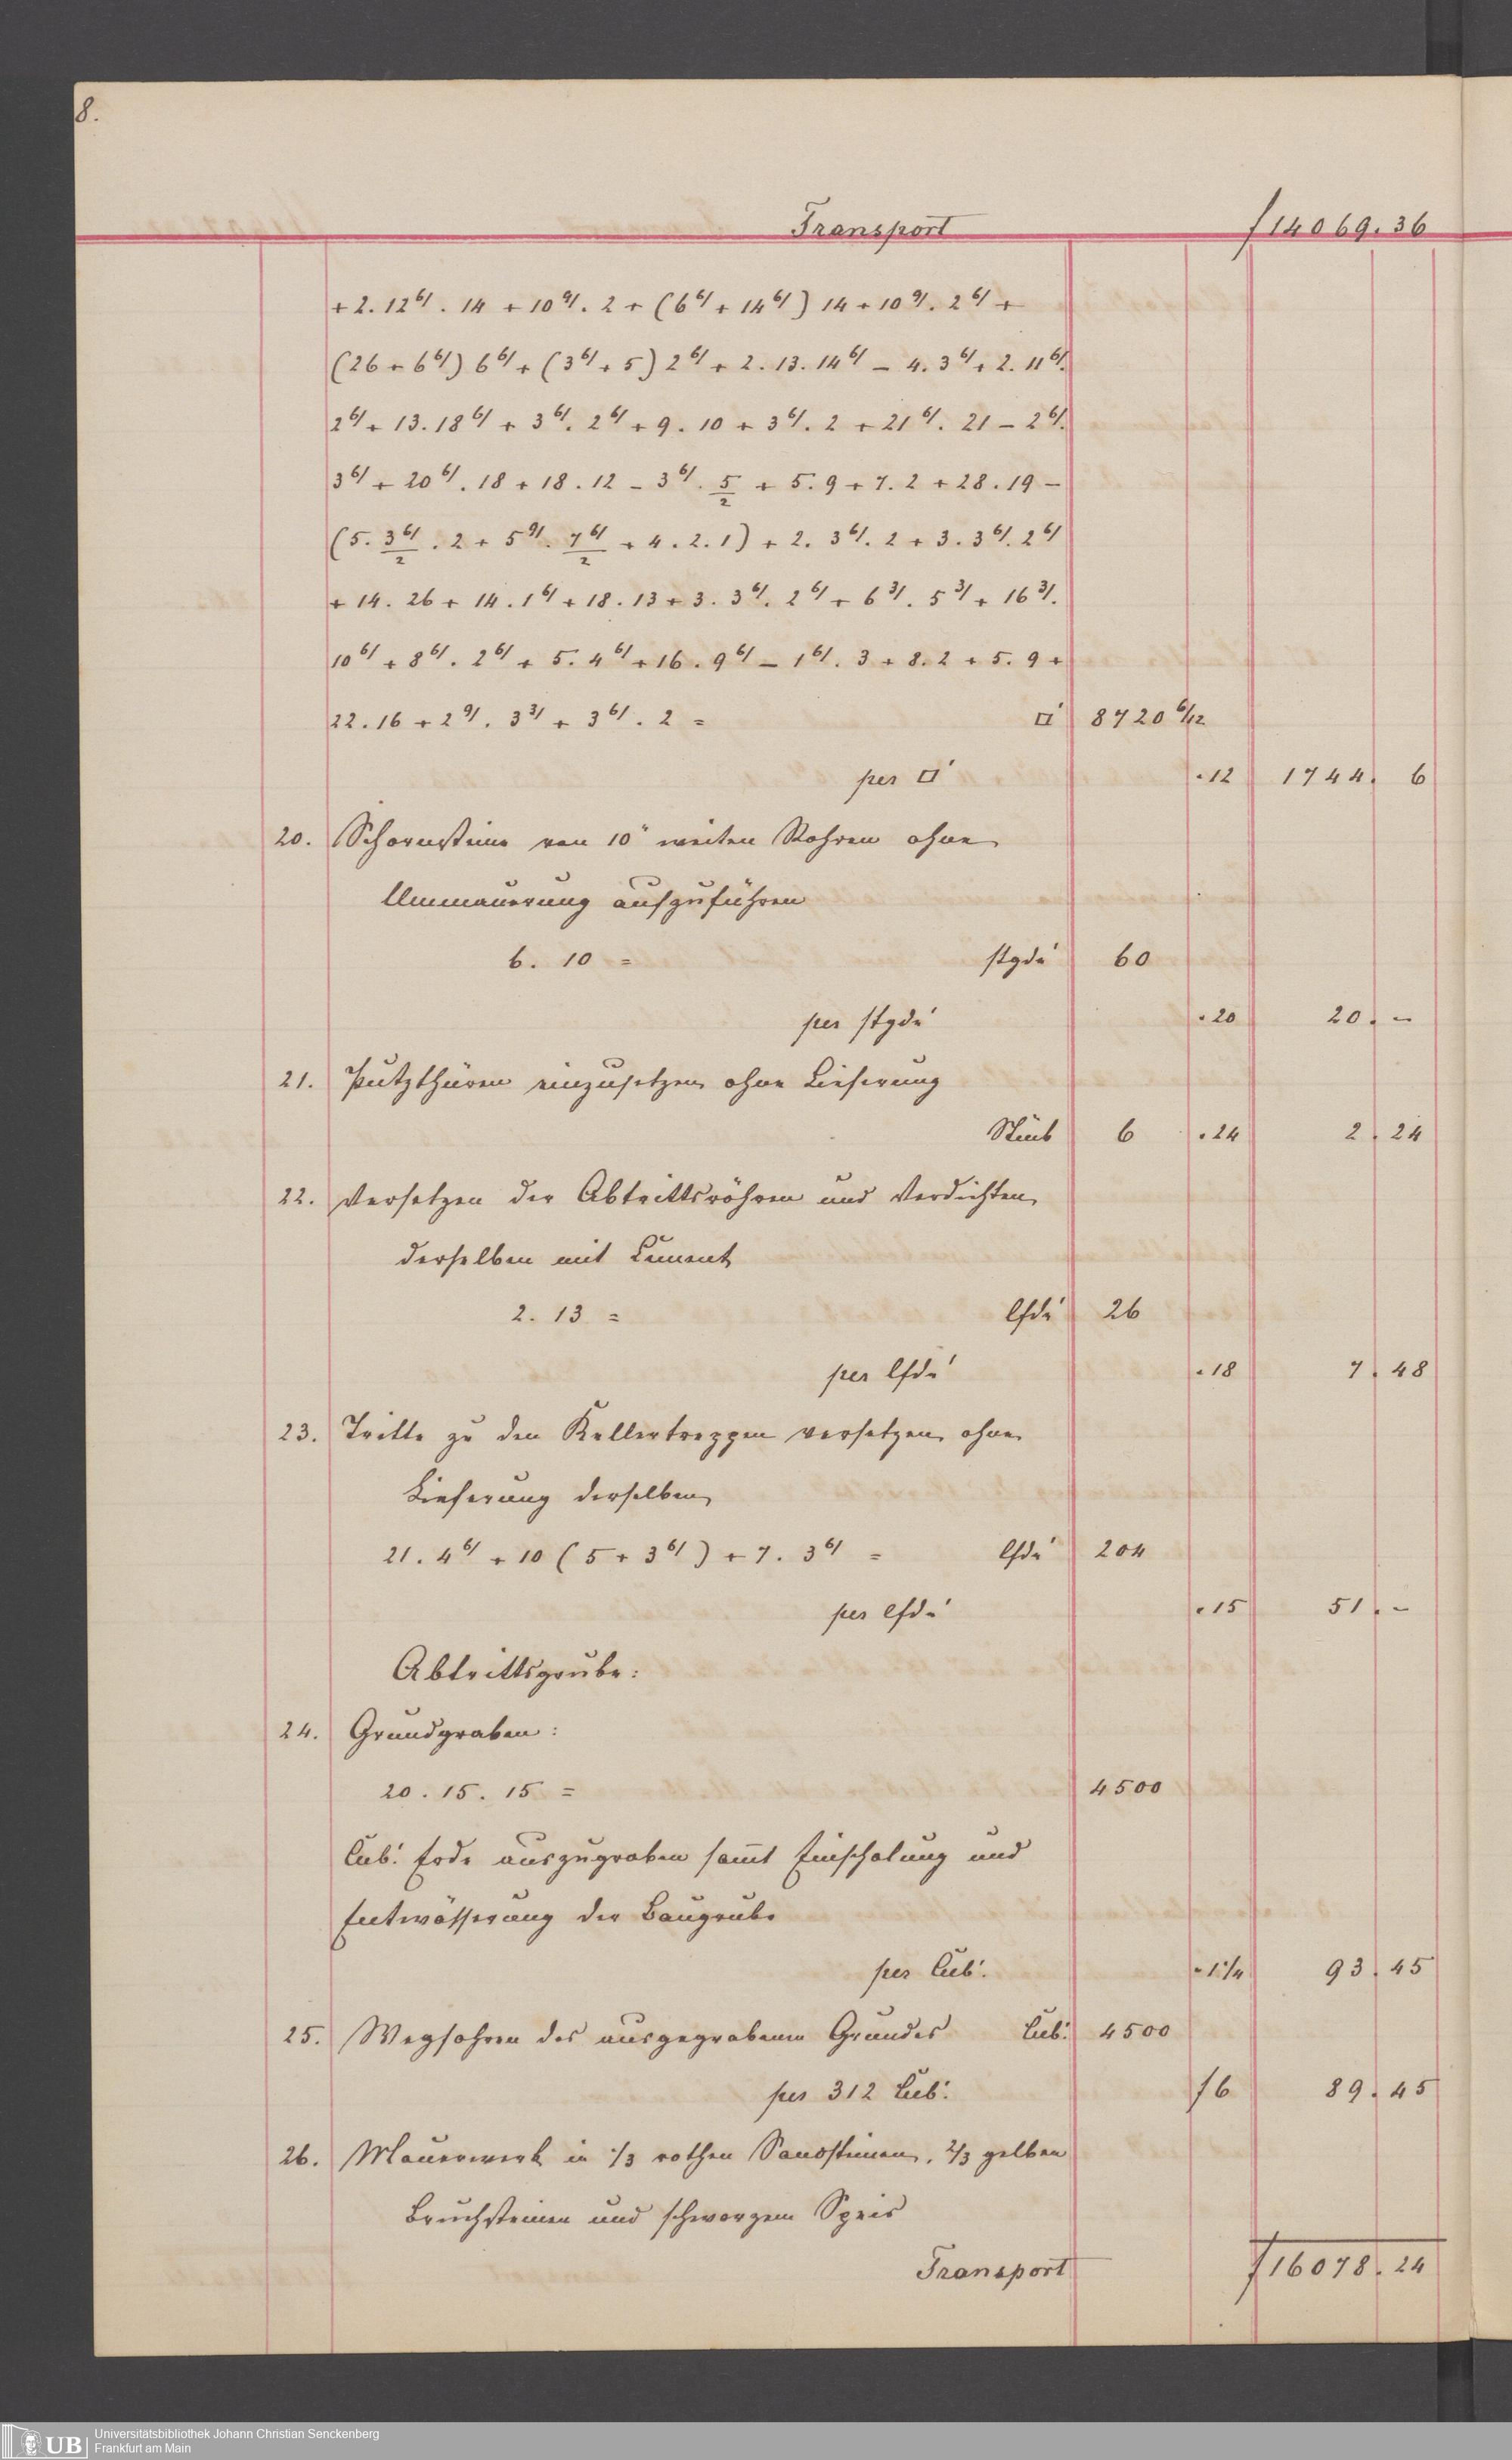 8.
Transport f 14069. 36
+ 2. 12 6/ . 14 + 10 9/. 2 + (6 6/ + 14 6/) 14 + 10 9/. 2 6/ +
(26 + 6 6/) 6 6/ + (3 6/ + 5) 2 6/ + 2. 13. 14 6/ – 4. 3 6/ + 2. 11 6/.
2 6/ + 13. 18 6/ + 3 6/. 2 6/ + 9. 10 + 3 6/. 2 + 21 6/. 21 – 2 6/.
3 6/ + 20 6/. 18 + 18. 12 – 3 6/. 5/2 + 5. 9 + 7. 2 + 28. 19 –
(5. 3 6/ /2 . 2 + 5 9/. 7 6/ /2 + 4. 2. 1) + 2. 3 6/. 2 + 3. 3 6/. 2 6/
+ 14. 26 + 14. 1 6/ + 18. 13 + 3. 3 6/. 2 6/ + 6 3/. 5 3/ + 16 3/.
10 6/ + 8 6/. 2 6/ + 5. 4 6/ + 16. 9 6/ – 1 6/. 3 + 8. 2 + 5. 9 +
22. 16 + 2 9/. 3 3/ + 3 6/. 2 = □' 8720 6/12
per □' " 12 1744. 6
20. Schornsteine von 10" weiten Rohren ohne
Ummauerung aufzuführen
6. 10 = stgde' 60
per stgde' " 20 20. –
21. Putzthüren einzusetzen ohne Lieferung
Stück 6 " 24 2. 24
22. Versetzen der Abtrittsröhren und Verdichten
derselben mit Cement
2. 13 = lfde' 26
per lfde' " 18 7. 48
23. Tritte zu den Kellertreppen versetzen ohne
Lieferung derselben
21. 4 6/ + 10 (5 + 3 6/) + 7. 3 6/ = lfde' 204
per lfde' " 15 51. –
Abtrittsgrube:
24. Grundgraben:
20. 15. 15 = 4500
Cub.' Erde auszugraben sam̅t Einschalung und
Entwässerung der Baugrube
per Cub.' " 1 1/4 93. 45
25. Wegfahren des ausgegrabenen Grundes Cub.' 4500
per 312 Cub.' f 6 89. 45
26. Mauerwerk in 1/3 rothen Sandsteinen, 2/3 gelben
Bruchsteinen und schwarzem Speis
Transport f 16078. 24
UB Universitätsbibliothek Johann Christian Senckenberg
Frankfurt am Main